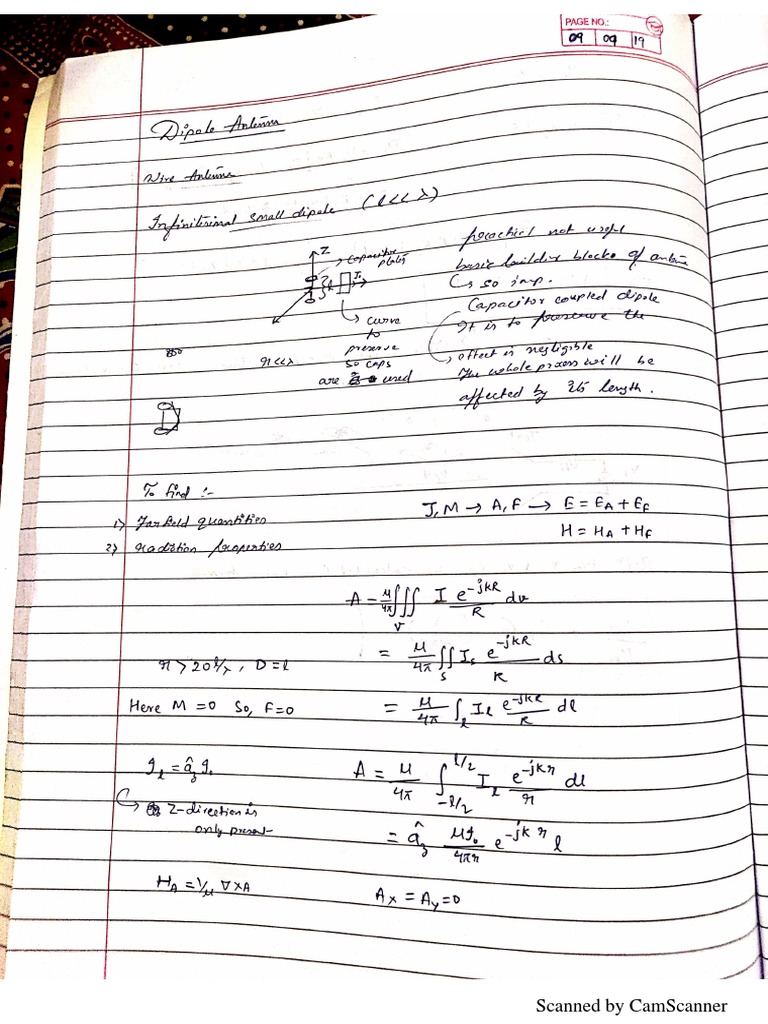 PAGE NO.:
09 09 19
Dipole Antenna
Wire Antenna
Infinitesimal small dipole (l<<λ)
Z
Capacitor plates
l
I₀
curve
to
preserve
so caps
are used
r<<λ
practical not useful
basic building blocks of antenna
↳ so imp.
Capacitor coupled dipole
It is to preserve the
effect is negligible
The whole process will be
affected by its length.
To find :-
1) Far field quantities
2) radiation properties
J, M → A, F → E = E_A + E_F
H = H_A + H_F
A = μ/4π ∭_V I e^{-jkR}/R dv
= μ/4π ∬_S I_s e^{-jkR}/R ds
r > 2D²/λ, D = l
Here M = 0 So, F = 0
= μ/4π ∫_l I_l e^{-jkR}/R dl
I_l = â_z I₀
A = μ/4π ∫_{-l/2}^{l/2} I_l e^{-jkr}/r dl
↳ Z-direction is
only present
= â_z μI₀/4πr e^{-jkr} l
H_A = 1/μ ∇×A
A_x = A_y = 0
Scanned by CamScanner